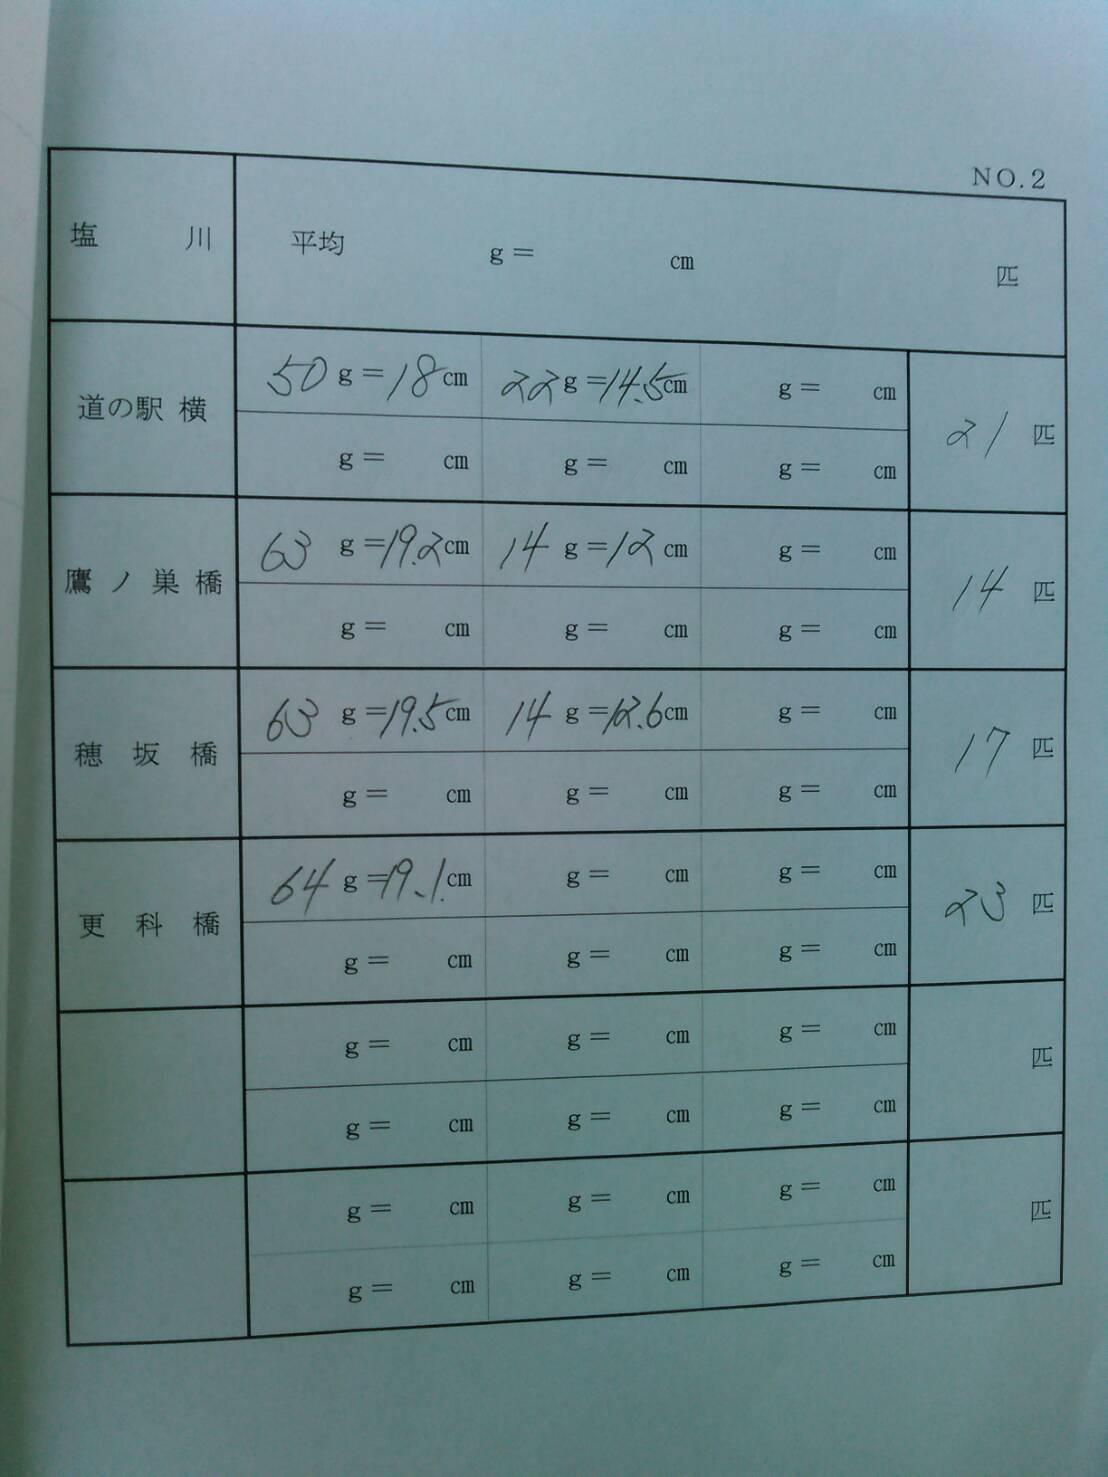 NO.2
塩 川 平均 g＝ cm 匹
50 g＝18cm 22g＝14.5cm g＝ cm
道の駅 横 21 匹
g＝ cm g＝ cm g＝ cm
63 g＝19.2cm 14 g＝12cm g＝ cm
鷹ノ巣橋 14 匹
g＝ cm g＝ cm g＝ cm
63 g＝19.5cm 14 g＝12.6cm g＝ cm
穂坂橋 17 匹
g＝ cm g＝ cm g＝ cm
64 g＝19.1cm g＝ cm g＝ cm
更科橋 23 匹
g＝ cm g＝ cm g＝ cm
g＝ cm g＝ cm g＝ cm
匹
g＝ cm g＝ cm g＝ cm
g＝ cm g＝ cm g＝ cm
匹
g＝ cm g＝ cm g＝ cm